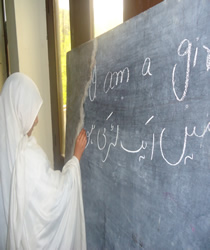 I am a gir
میں ایک لڑکی